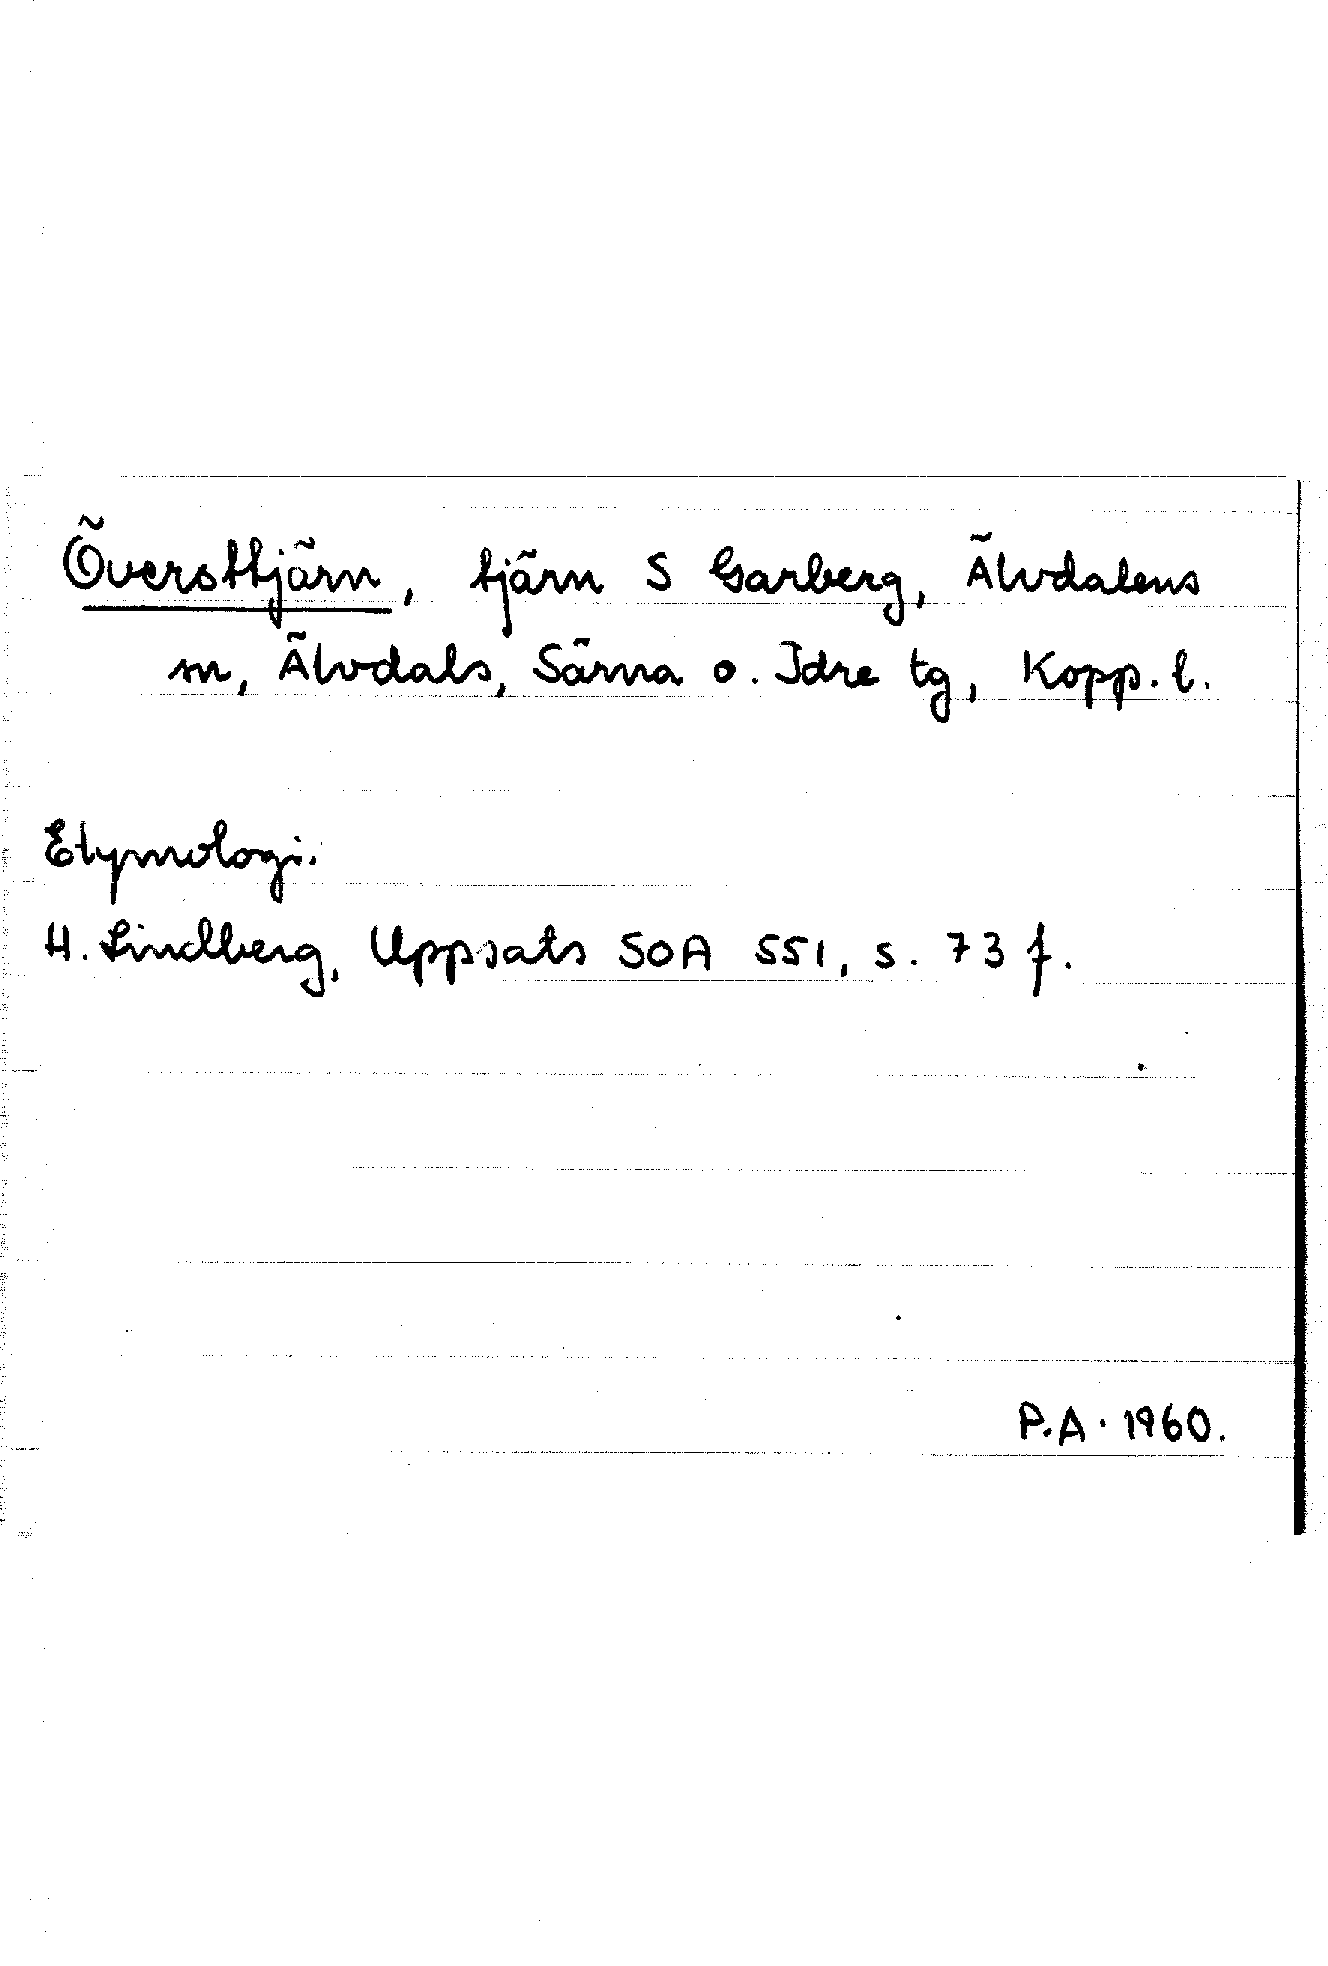 Översttjärn, tjärn S Garberg, Älvdalens
sn, Älvdals, Särna o. Idre tg, Kopp. l.
Etymologi.
H. Lindberg, Uppsats SOA 551, s. 73 f.
P.A. 1960.